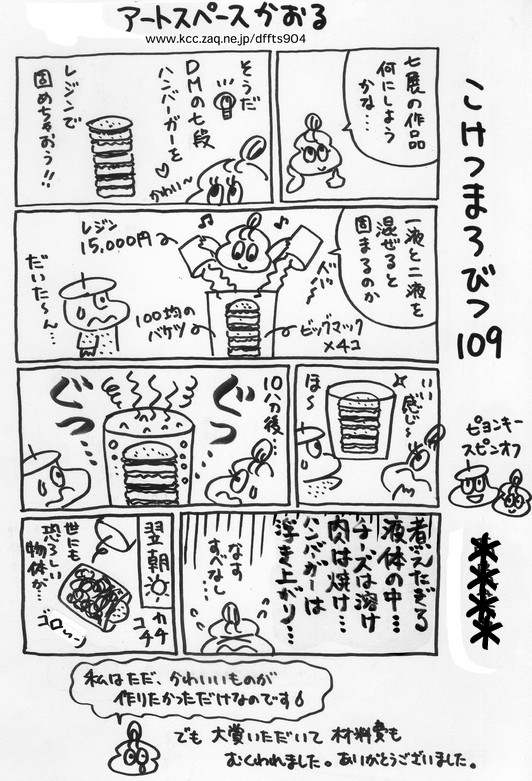 アートスペースかおる
www.kcc.zaq.ne.jp/dffts904
こけつまろびつ109
七展の作品
何にしよう
かな…
そうだ
DMの七段
ハンバーガーを
かわい〜
レジンで
固めちゃおう!!
一液と二液を
混ぜると
固まるのか
レジン
15,000円
100均の
バケツ
ビッグマック
×4コ
だいた〜ん…
いい
感じ〜
ほ〜
10分後…
ぐつ
ぐつ…
煮えたぎる
液体の中…
チーズは溶け
肉は焼け…
ハンバーガーは
浮き上がり…
なす
すべなし…
翌朝
カチ
コチ
世にも
恐ろしい
物体が…
ゴロ〜ン
ピヨンキー
スピンオフ
私はただ、かわいいものが
作りたかっただけなのです
でも 大賞いただいて 材料費も
むくわれました。ありがとうございました。